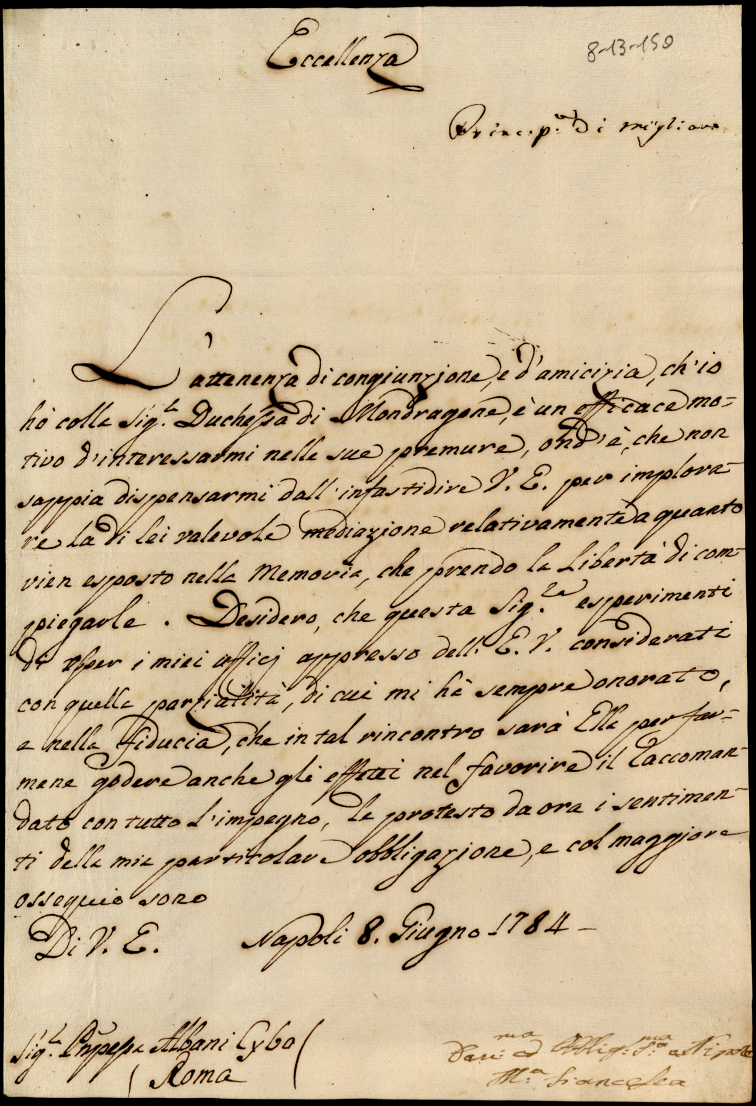 Eccellenza
8-13-150
Princip.a di Migliano
L'attenenza di congiunzione, e d'amicizia, ch'io
hò colla Sig.ra Duchessa di Mondragone, è un efficace mo-
tivo d'interessarmi nelle sue premure, ond'è, che non
sappia dispensarmi dall'infastidire V. E. per implora-
re la di lei valevole mediazione relativamente a quanto
vien esposto nella Memoria, che prendo la libertà di com-
piegarle. Desidero, che questa Sig.ra esperimenti
di esser i miei officj appresso dell'E. V. considerati
con quella parzialità, di cui mi hà sempre onorato,
e nella fiducia, che in tal rincontro sarà Ella per far-
mene godere anche gli effetti nel favorire il raccoman-
dato con tutto l'impegno, le protesto da ora i sentimen-
ti della mia particolare obbligazione, e col maggiore
ossequio sono
Di V. E. Napoli 8. Giugno 1784 -
Sig.ra Pnpessa Albani Cybo
Roma
Dev.ma ed Obblig: S.ma
M.a